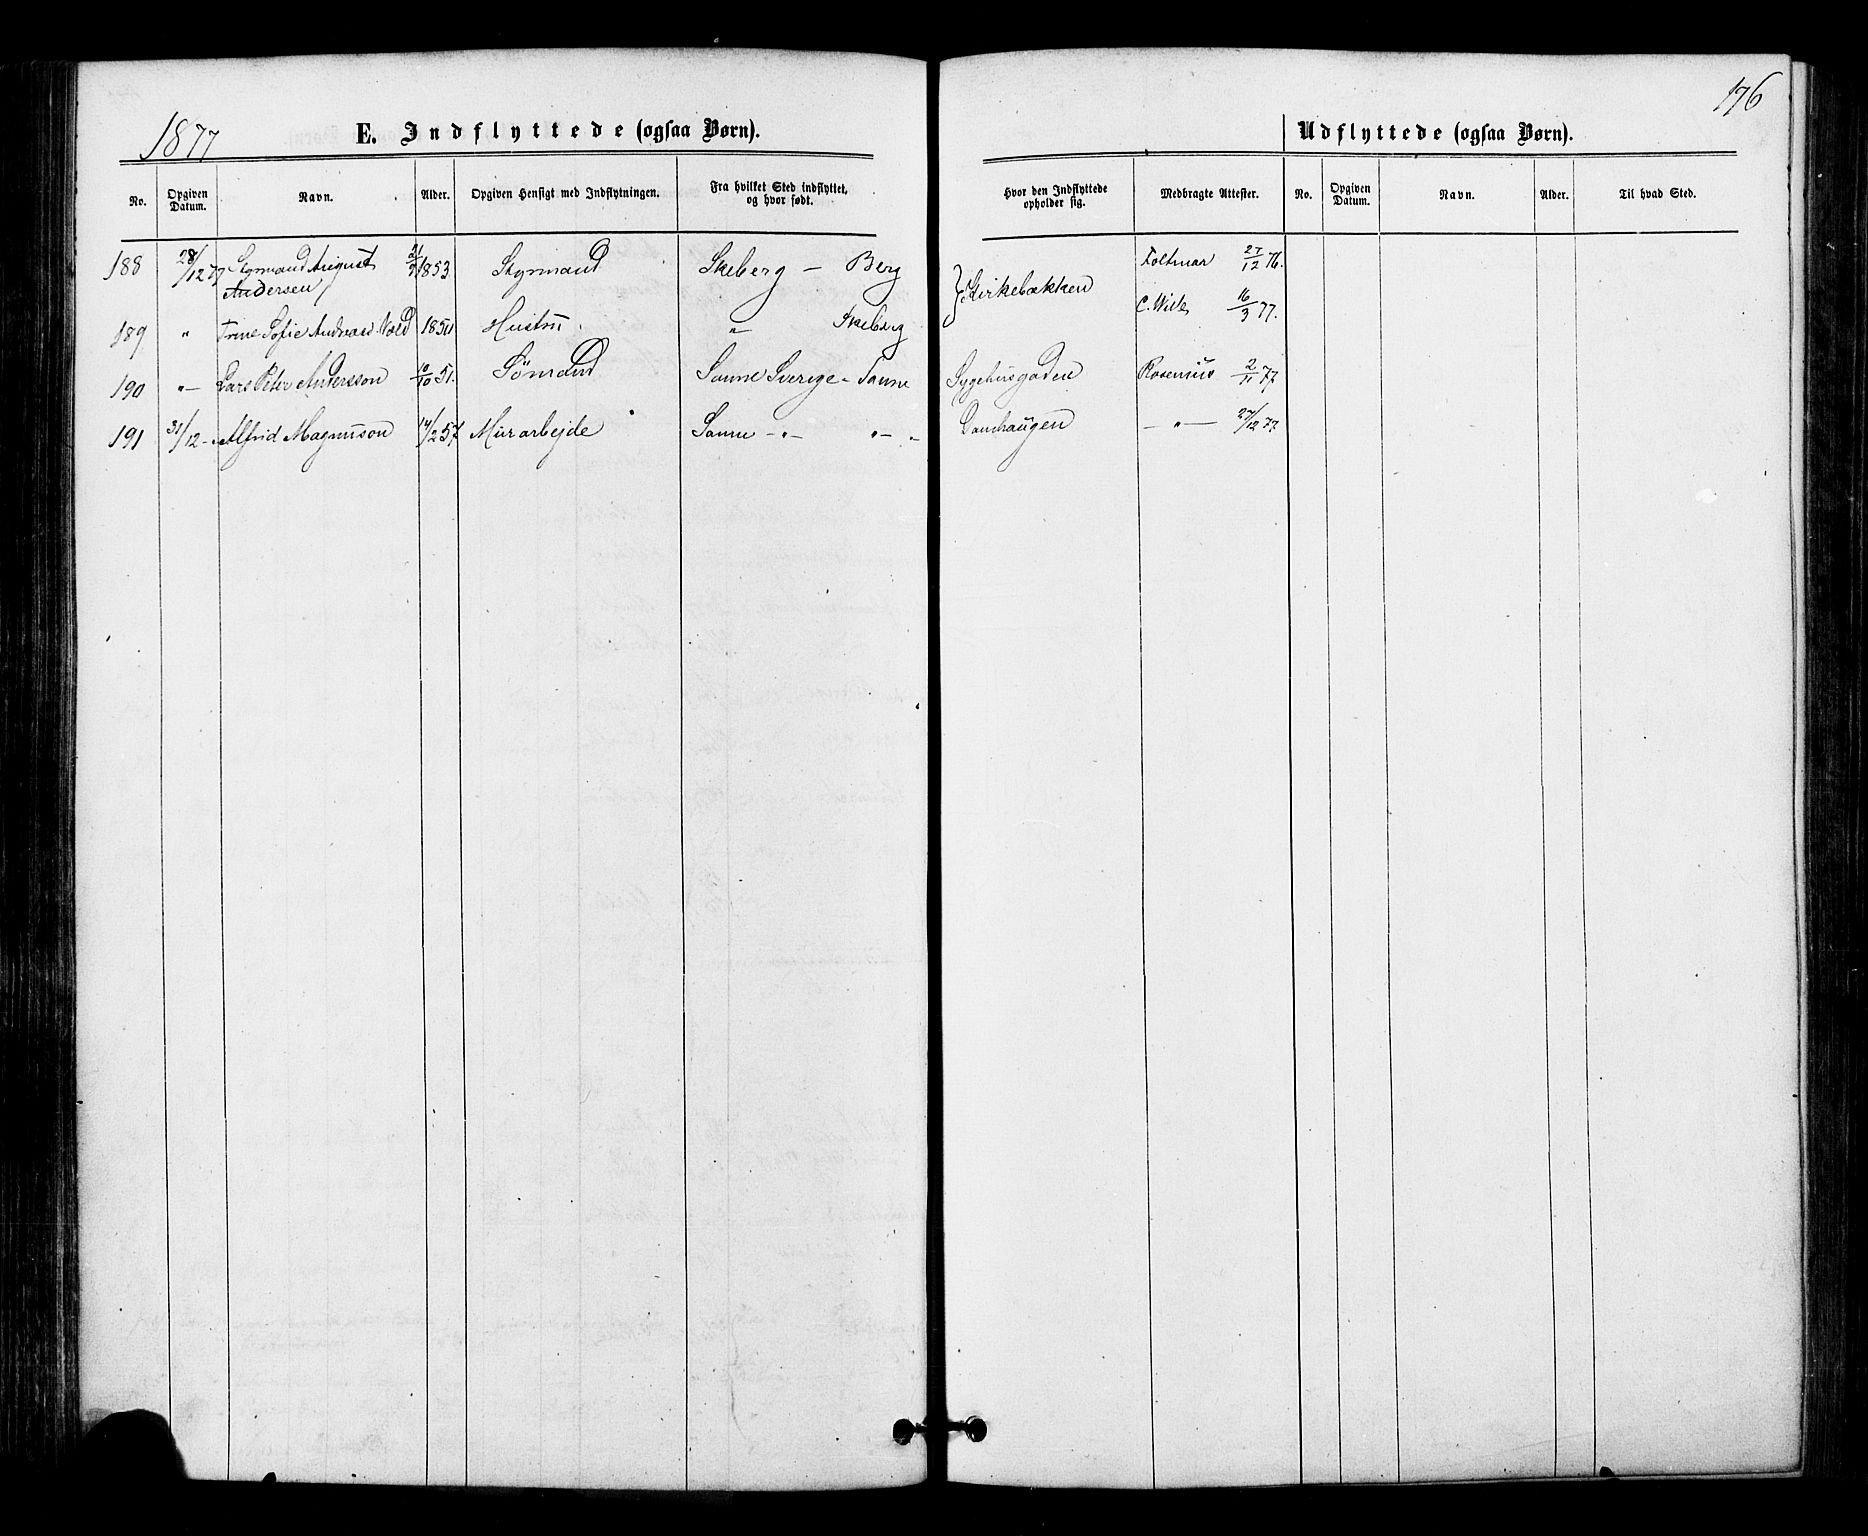 176
1877
E. Indflyttede (ogsaa Børn).
Udflyttede (ogsaa Børn).
No.
Opgiven Datum.
Navn.
Alder.
Opgiven Hensigt med Indflytningen.
Fra hvilket Sted indflyttet, og hvor født.
Hvor den Indflyttede opholder sig.
Medbragte Attester.
No.
Opgiven Datum.
Navn.
Alder.
Til hvad Sted.
188 28/12 77 Styrmand August 1853 Styrmand Skeberg — Berg } Kirkebækken Foltmar 27/12 76.
Andersen
189 " Trine Sofie Andreasd Vold 1850 Hustru. " Skeberg C. Wille 16/3 77.
190 "— Lars Peter Andersson 10/10 51. Sömand Sanne Sverige - Sanne Sygehusgaden Rosenius 2/11 77
191 31/12 - Alfrid Magnuson 14/2 57 Murarbejde Sanne -"- "- " Damhaugen — " — 27/12 77